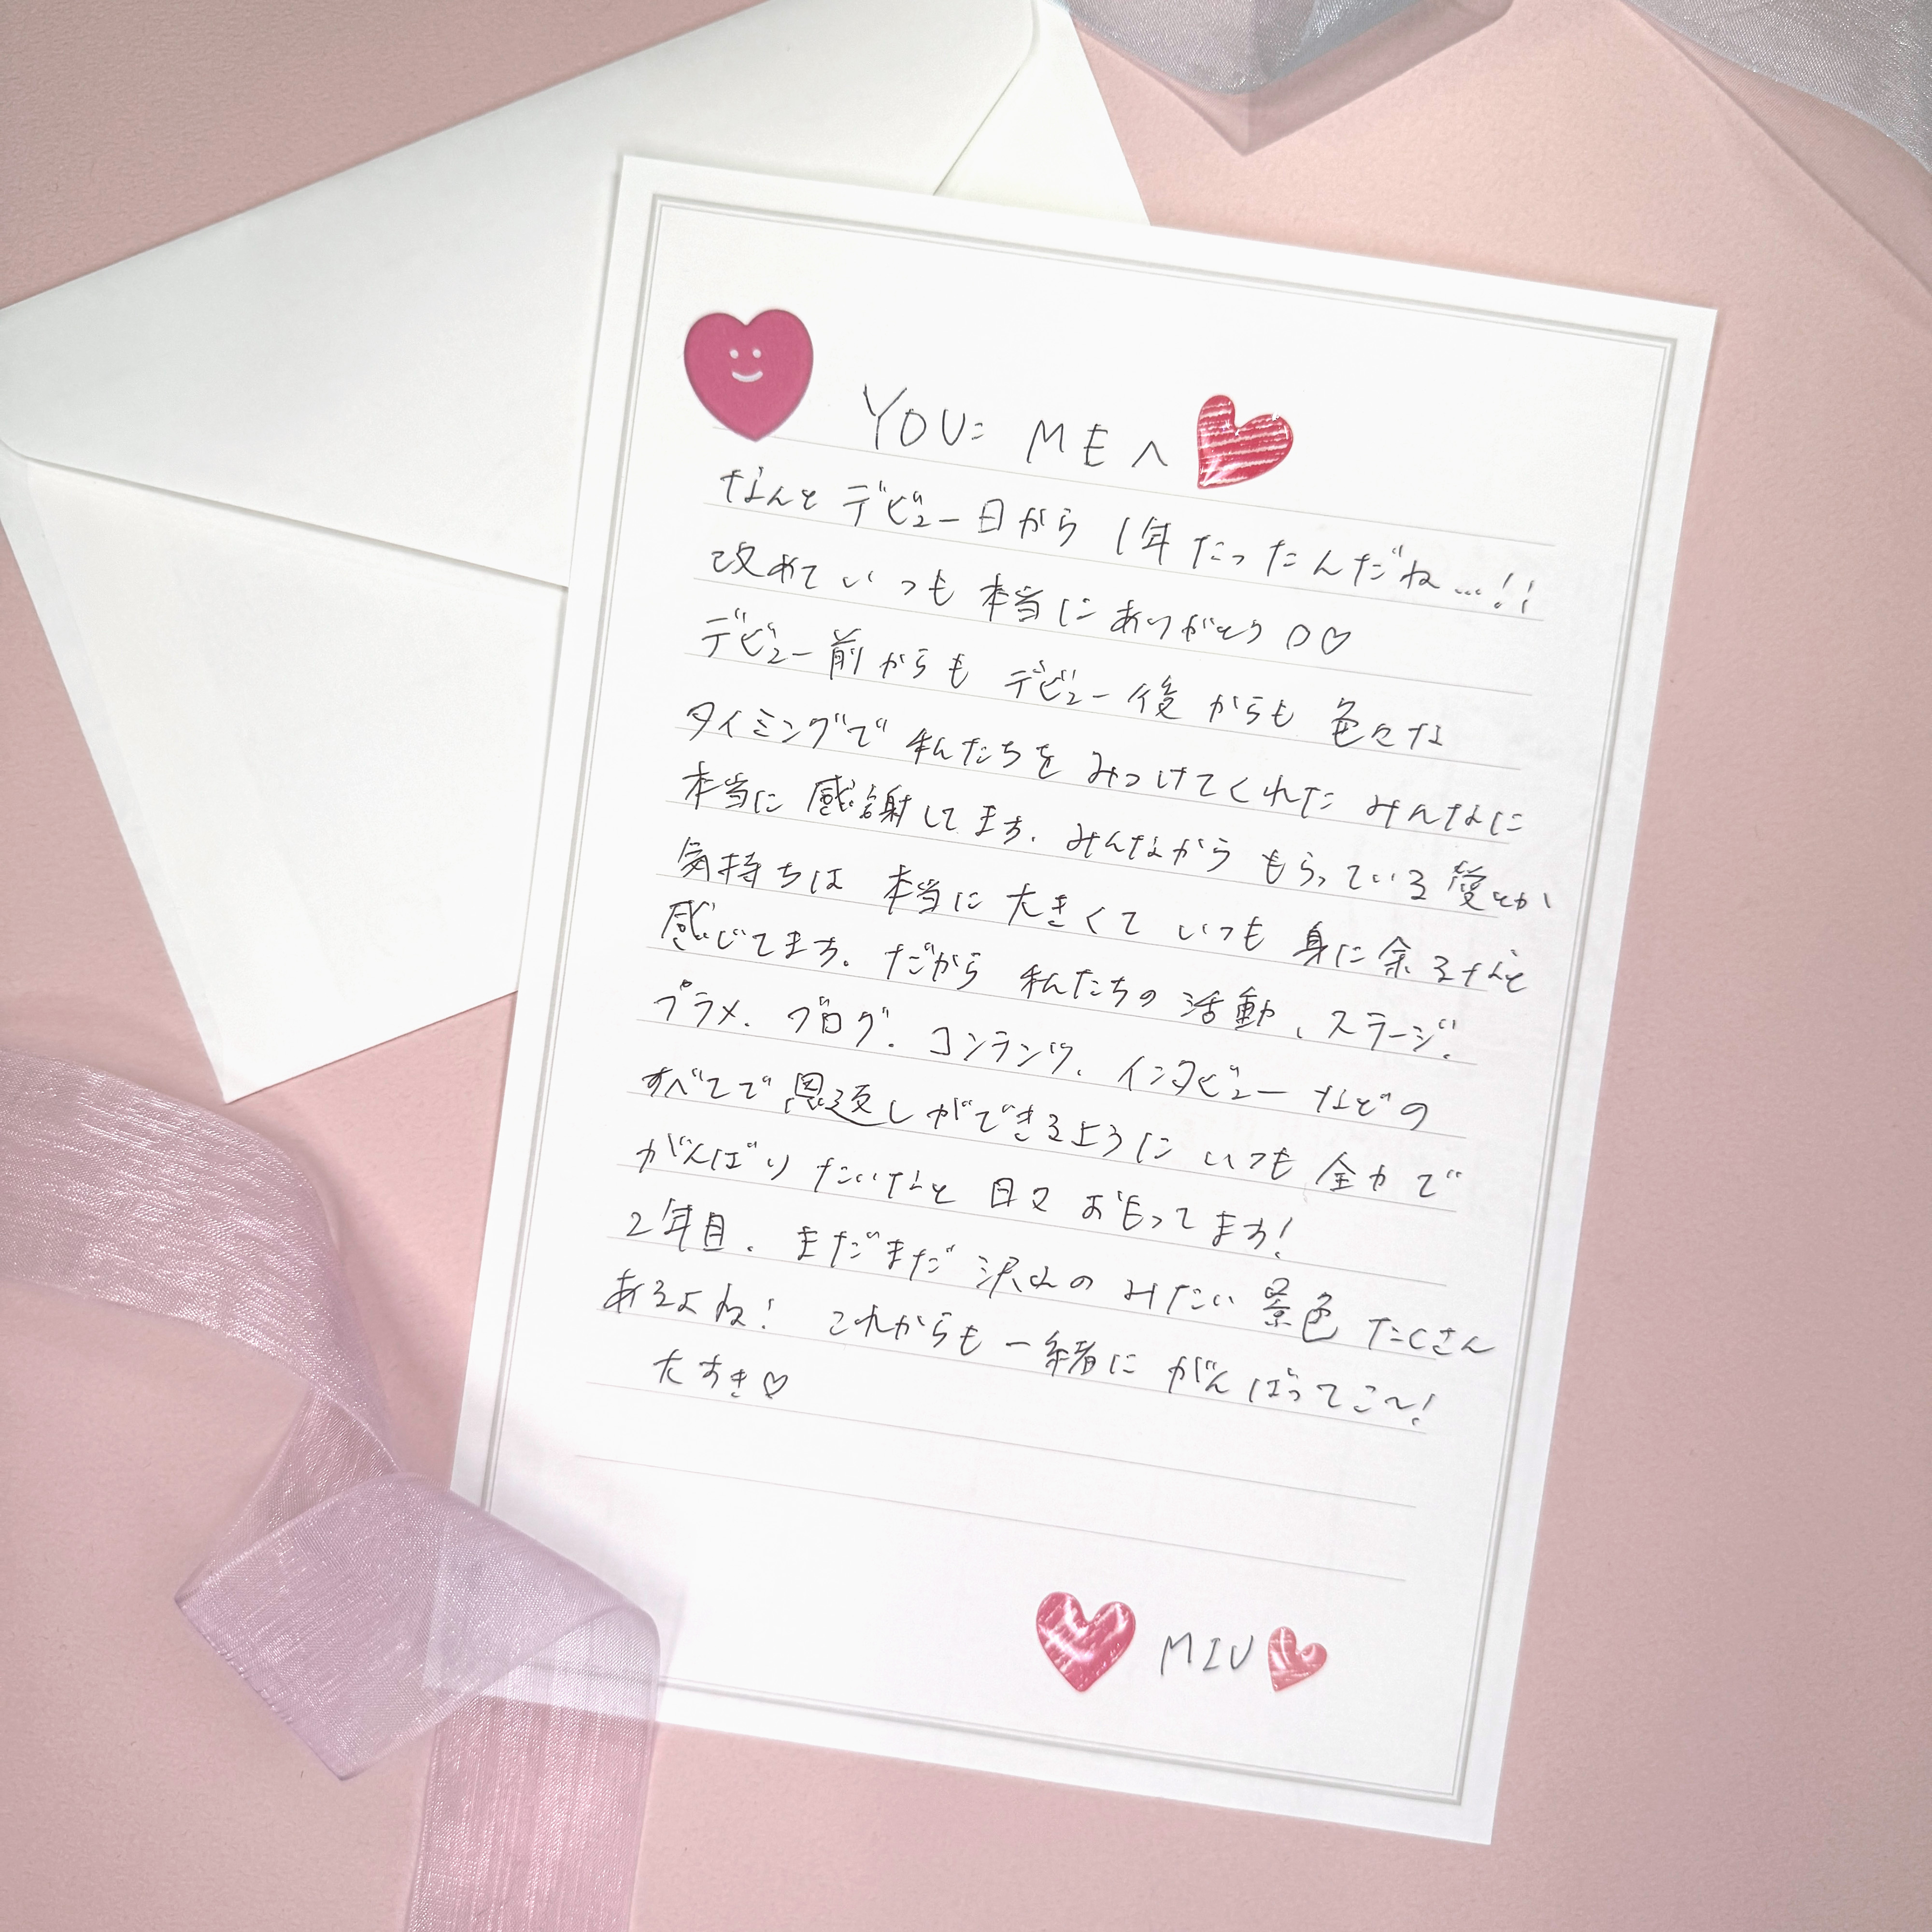 YOU: MEへ
なんとデビュー日から1年たったんだね…!!
改めていつも本当にありがとう○♡
デビュー前からもデビュー後からも色々な
タイミングで私たちをみつけてくれたみんなに
本当に感謝してます. みんなからもらっている愛とか
気持ちは本当に大きくていつも身に余るなと
感じてます. だから私たちの活動、ステージ.
プラメ. ブログ. コンテンツ. インタビューなどの
すべてで恩返しができるようにいつも全力で
がんばりたいなと日々おもってます!
2年目. まだまだ沢山のみたい景色たくさん
あるよね! これからも一緒にがんばってこ〜!
大すき♡
MIU